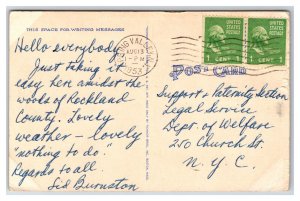 THIS SPACE FOR WRITING MESSAGES
Hello everybody,
Just taking it
easy here amidst the
woods of Rockland
County. Lovely
weather - lovely
"nothing to do".
Regards to all.
Sid Burnston
SPRING VALLEY, N.Y.
AUG 13
-PM
1953
UNITED STATES POSTAGE
1 CENT 1
UNITED STATES POSTAGE
1 CENT 1
POST CARD
Support + Paternity Section
Legal Service
Dept. of Welfare
250 Church St.
N. Y. C.